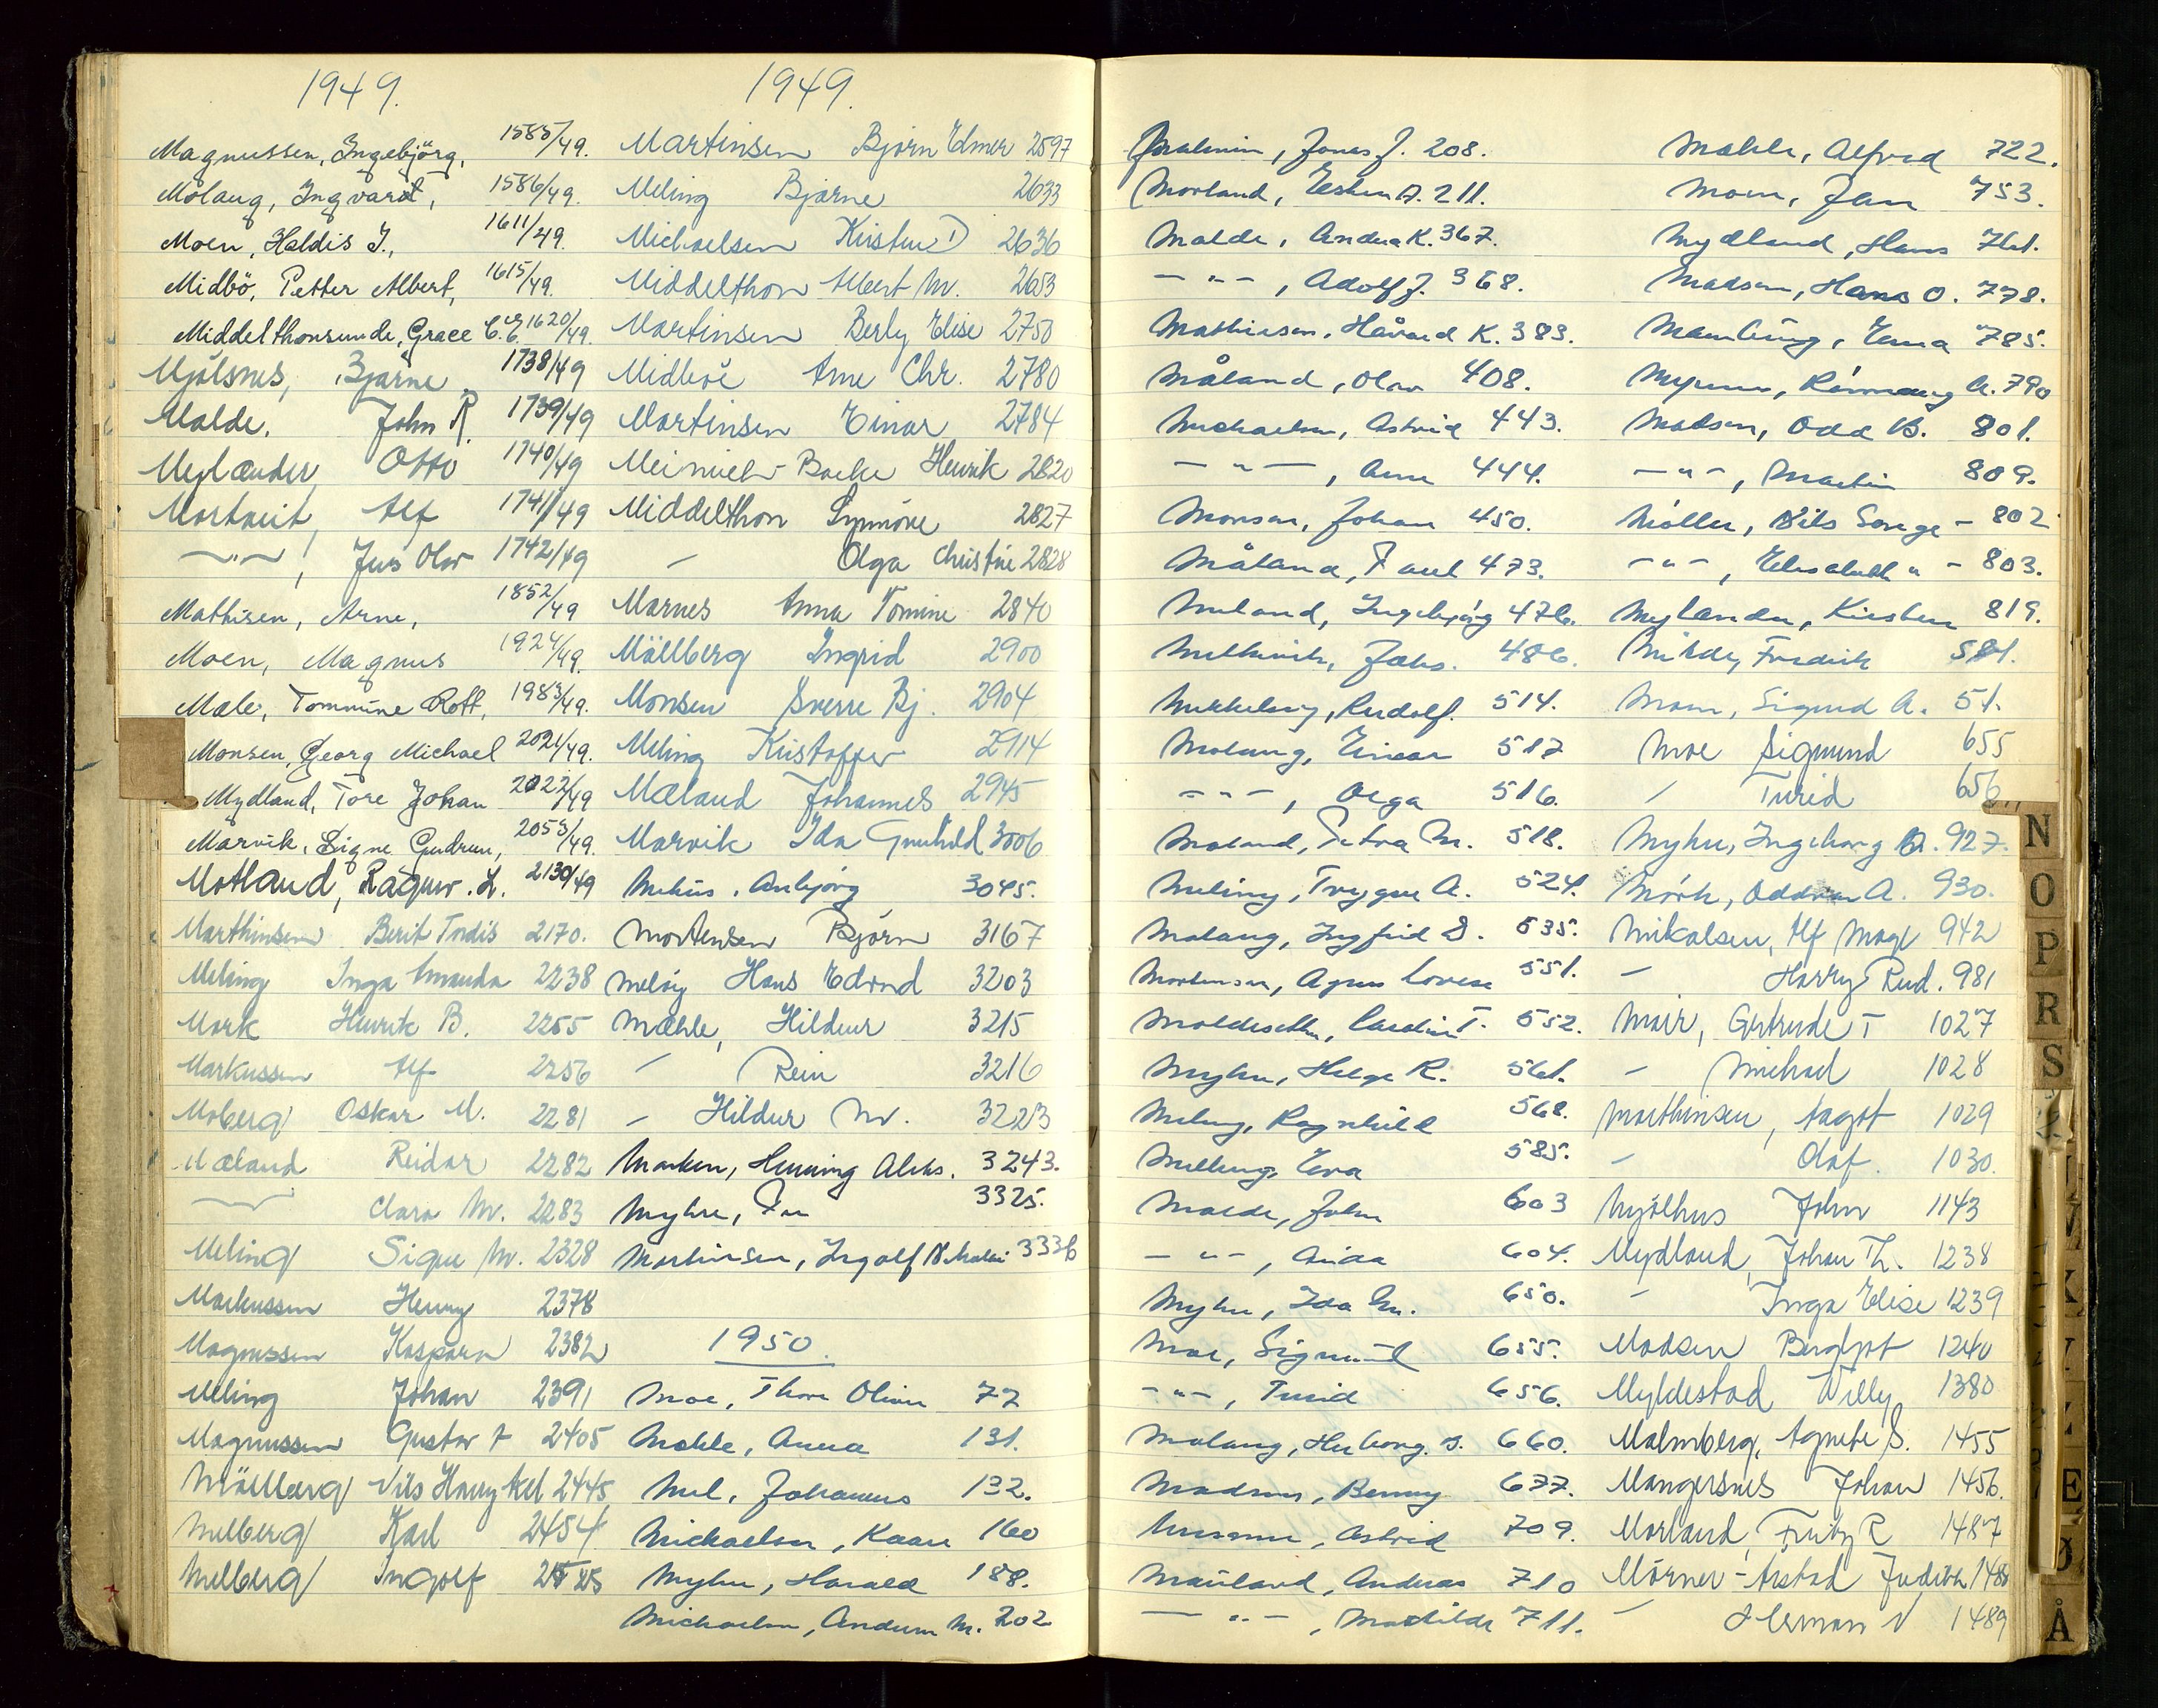 1949.
Magnussen, Ingebjörg, 1585/49.
Molaug, Ingvard, 1586/49.
Moen, Haldis J., 1611/49.
Midbö, Petter Albert, 1615/49.
Middelthonsunde, Grace 1620/49.
Mjölsnes, Bjarne 1738/49
Malde, John R. 1739/49
Meylænder, Otto 1740/49
Mortveit, Alf 1741/49
—"—, Jens Olav 1742/49
Mathisen, Arne, 1852/49
Moen, Magnus 1924/49.
Mæle, Tommine Rott, 1983/49.
Monsen, Georg Michael 2021/49.
Mydland, Tore Johan 2022/49
Marvik, Signe Gudrun, 2053/49.
Motland, Ragnv. L. 2130/49
Marthinsen Berit Tordis 2170.
Meling Inga Amanda 2238
Mork Henrik B. 2255
Markussen Alf 2256
Moberg Oskar M. 2281
Mæland Reidar 2282
—"— Clara M. 2283
Meling Signe M. 2328
Markussen Henny 2378
Magnussen Kaspara 2382
Meling Johan 2391
Magnussen Gustav A 2405
Möllberg Nils Harry Axel 2445
Melberg Karl 2454
Melberg Ingolf
1949.
Martinsen Bjørn Elmer 2597
Meling Bjarne 2633
Michaelsen Kirsten D 2636
Middelthon Albert M. 2653
Martinsen Berly Elise 2750
Midböe Arne Chr. 2780
Martinsen Einar 2784
Meinich Bache Henrik 2820
Middelthon Synnöve 2827
— Olga Christine 2828
Marnes Anna Tomine 2840
Möllberg Ingrid 2900
Monsen Sverre Bj. 2904
Meling Kristoffer 2914
Mæland Johannes 2945
Marvik Ida Gunhild 3006
Mehus, Anbjörg 3045.
Mortensen Bjørn 3167
Meling Hans Edvard 3203
Mæhle, Hildur 3215
— Rein 3216
— Hildur M. 3223
Marken, Henning Aleks. 3243.
Myhre, 3325.
Martinsen, Ingolf 3336
1950.
Moe, Thore Oliver 77
Mæhle, Anna 131.
Mel, Johannes 132.
Michaelsen, Kaare 160
Myhre, Harald 188.
Michaelsen, M. 202
Malmin, Jonas J. 208.
Morland, Esten A. 211.
Malde, Andrea K. 367.
—"—, Adolf J. 368.
Mathiesen, Håvard K. 383.
Måland, Olav 408.
Michaelsen, Astrid 443.
—"—, Arne 444.
Monsen, Johan 450.
Måland, Paul 473.
Meland, Ingebjörg 476.
Melkevik, Jakc. 486.
Mikkelsen, Rudolf. 514.
Molaug, Einar 517
—"—, Olga 516.
Moland, Petra M. 518.
Meling, Trygve A. 524.
Molaug, Ingfrid D. 535.
Mortensen, Agnes Lovise 551.
552.
Myhre, Helge R. 561.
Meling, Ragnhild 568.
Melling, Eva 585.
Malde, John 603
—"—, Aida 604.
Myhre, Ida M. 650.
Moe, Sigmund 655.
—"—, Turid 656.
Molaug, Herborg. S. 660.
Madsen, Benny 677.
Astrid 709.
Mauland, Andreas 710
—"—, Mathilde 711.
Mæhle, Alfred 722.
Moen, Jan 753.
Mydland, Hans 761.
Madsen, Hans O. 778.
Erna 785.
790
Madsen, Odd B. 801.
—"—, Martin 809.
Möller, Nils Songe- 802
—"—, Elisabeth "- 803.
Meylænder, Kirsten 819.
Fredrik 581.
Moen, Sigurd A. 51.
Moe Sigmund 655
— Turid 656
Myhre, Ingeborg A. 927.
Mörk, Oddvar A. 930.
Mikalsen, Alf Magn 942
— Harry Rud. 981
Mair, Gertrude T 1027
— Michael 1028
Marthinsen, Aagot 1029
— Olaf. 1030.
Mjölhus John 1143
Mydland, Johan Th. 1238
— Inga Elise 1239
Madsen Bergljot 1240
Myldestad Willy 1380
Malmberg, Agnete S. 1455
Mangersnes Johan 1456.
Morland, Fritz R 1487
Mörner-Årstad Judith 1488
— Herman N 1489
N
O
P
R
S
E
Ø
Å